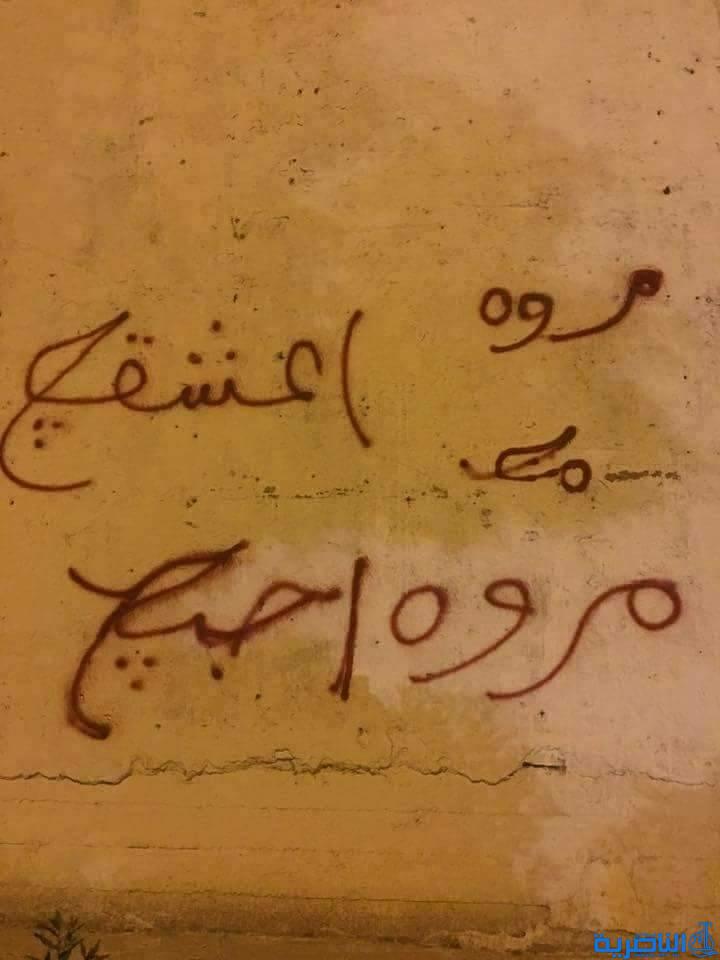 مروه
اعشقچ
مروه احبچ
الناصرية